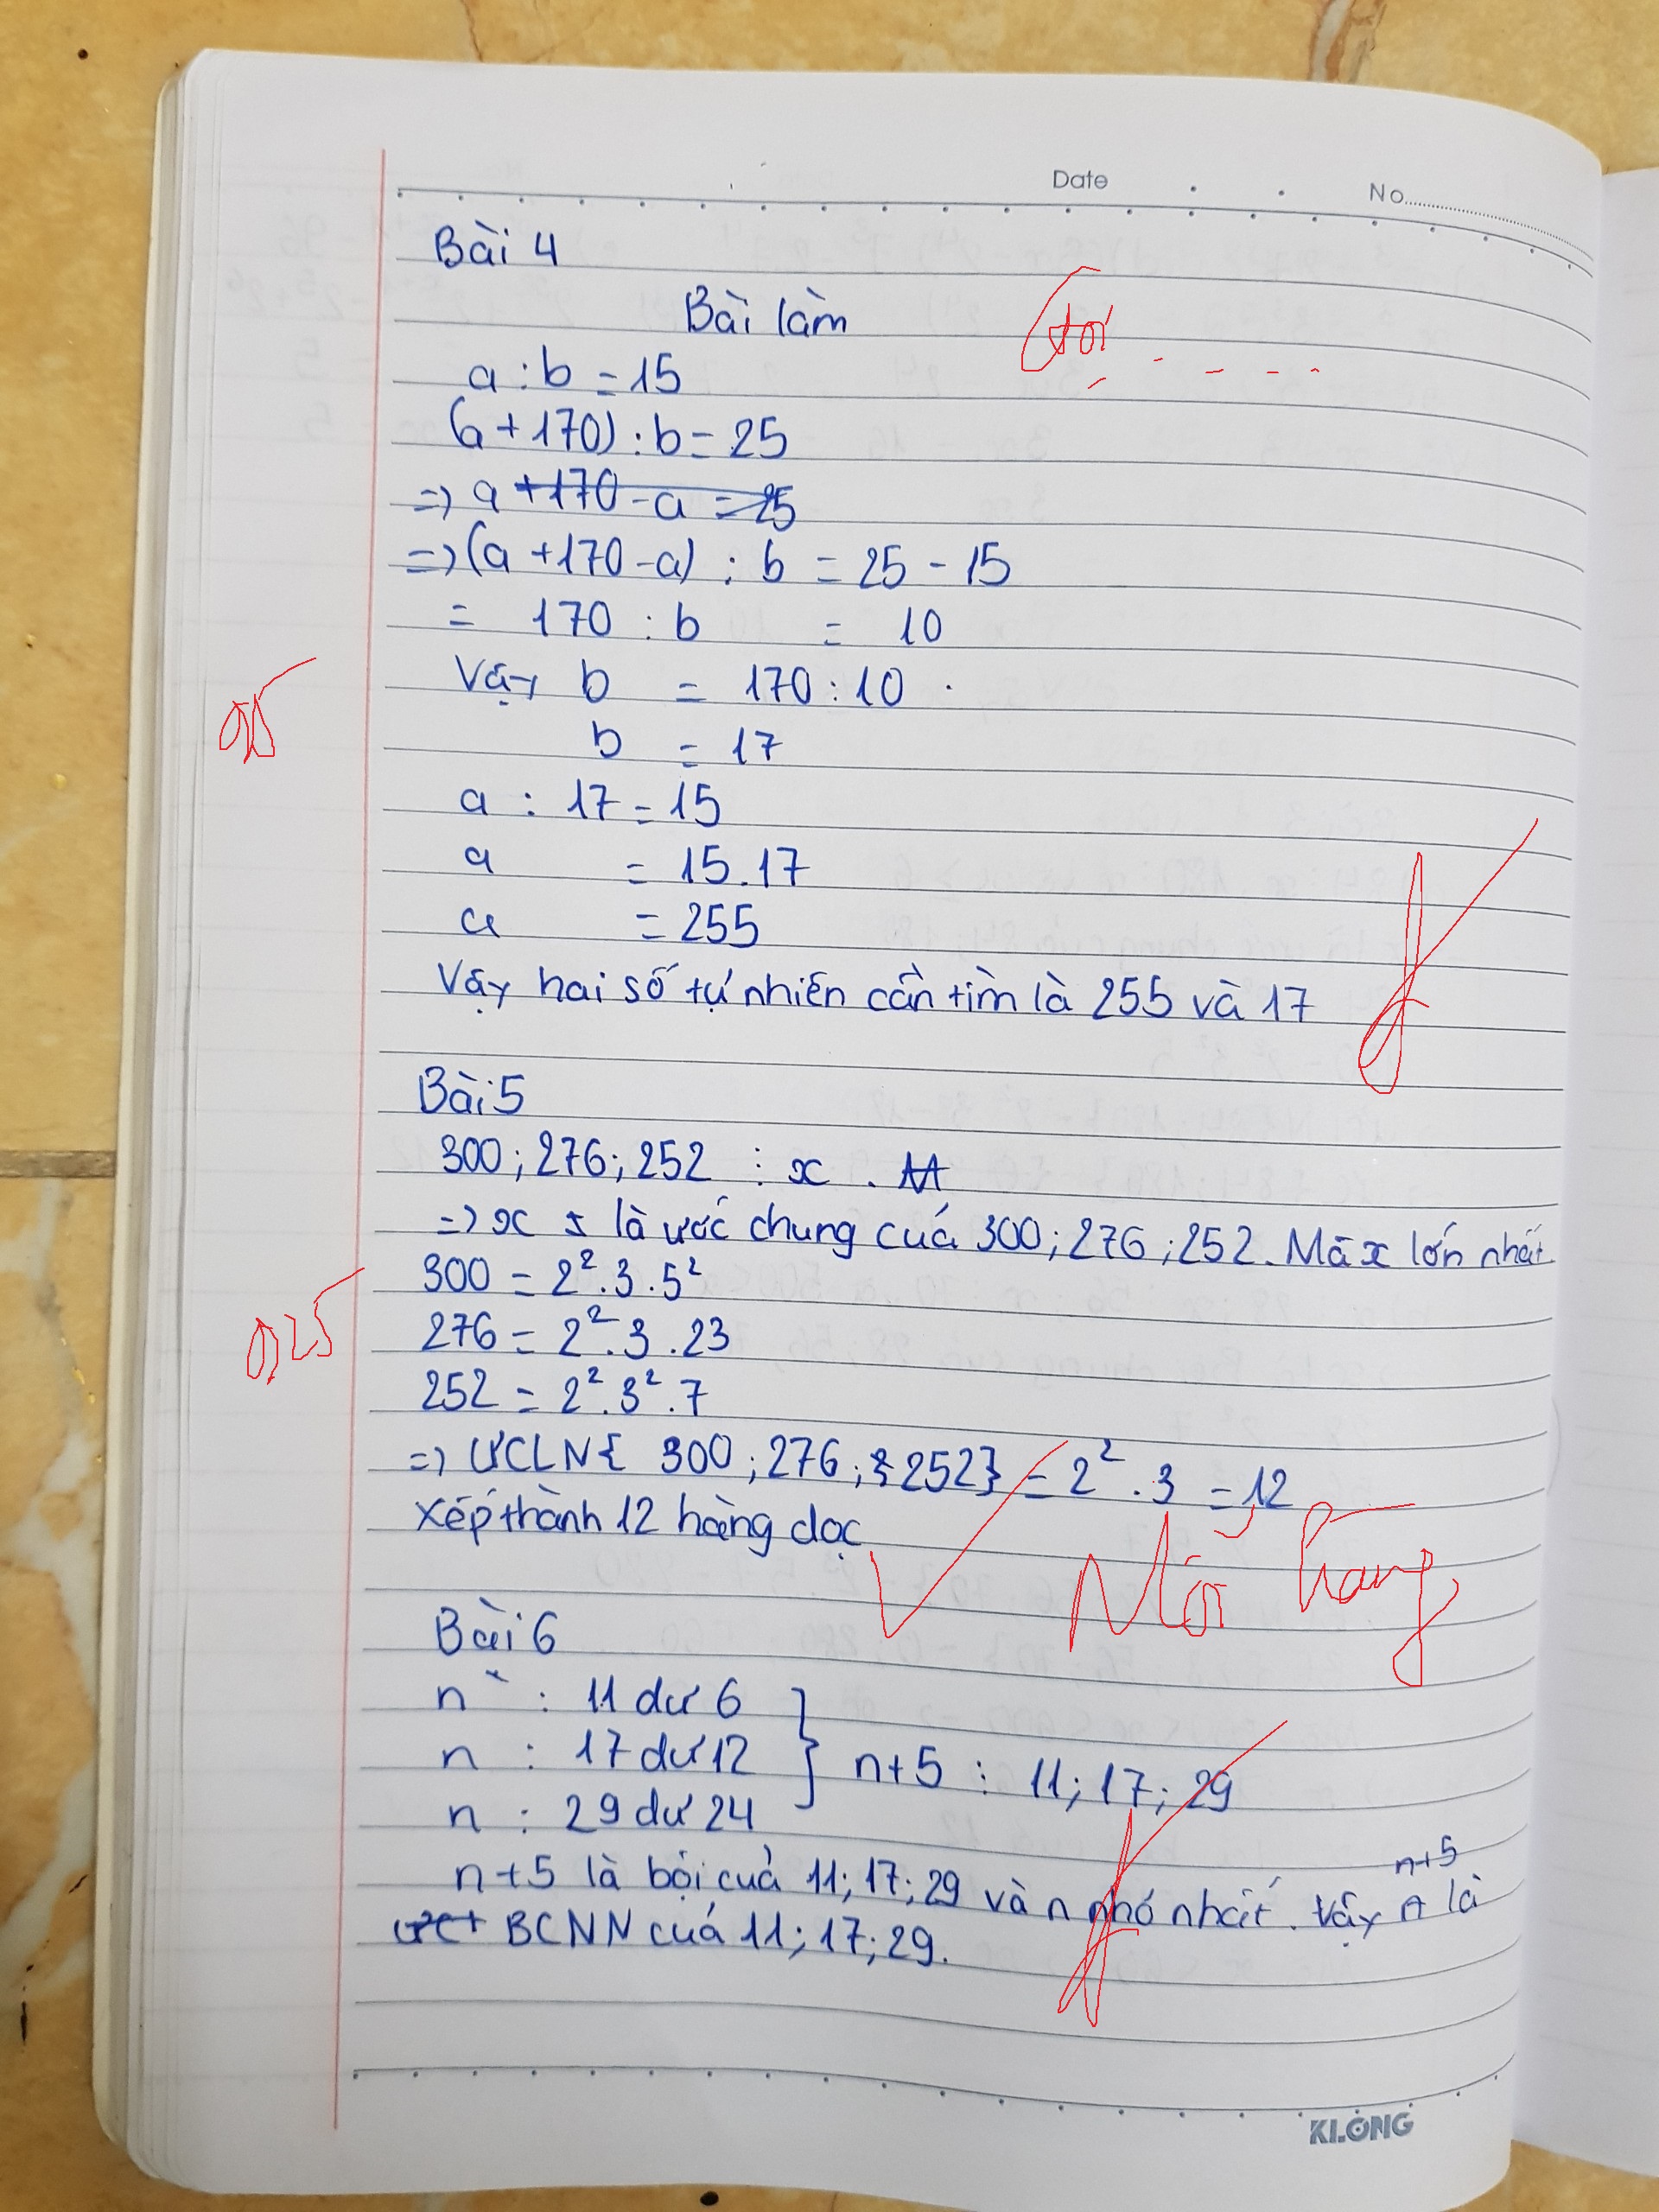 Date No
Bài 4
Bài làm
Gọi
a : b = 15
(a + 170) : b = 25
=> a +170 - a = 25
=> (a + 170 - a) : b = 25 - 15
= 170 : b = 10
Vậy b = 170 : 10
b = 17
a : 17 = 15
a = 15.17
a = 255
Vậy hai số tự nhiên cần tìm là 255 và 17
Bài 5
300 ; 276 ; 252 ⋮ x .
=> x là ước chung của 300 ; 276 ; 252. Mà x lớn nhất
300 = 2² . 3 . 5²
276 = 2² . 3 . 23
0,25
252 = 2² . 3² . 7
=> ƯCLN{ 300 ; 276 ; 252} = 2² . 3 = 12
Xếp thành 12 hàng dọc
Mỗi hàng
Bài 6
n : 11 dư 6
n : 17 dư 12 } n+5 ⋮ 11 ; 17 ; 29
n : 29 dư 24
n+5 là bội của 11; 17; 29 và n nhỏ nhất. Vậy n+5 là
BCNN của 11; 17; 29.
KLONG